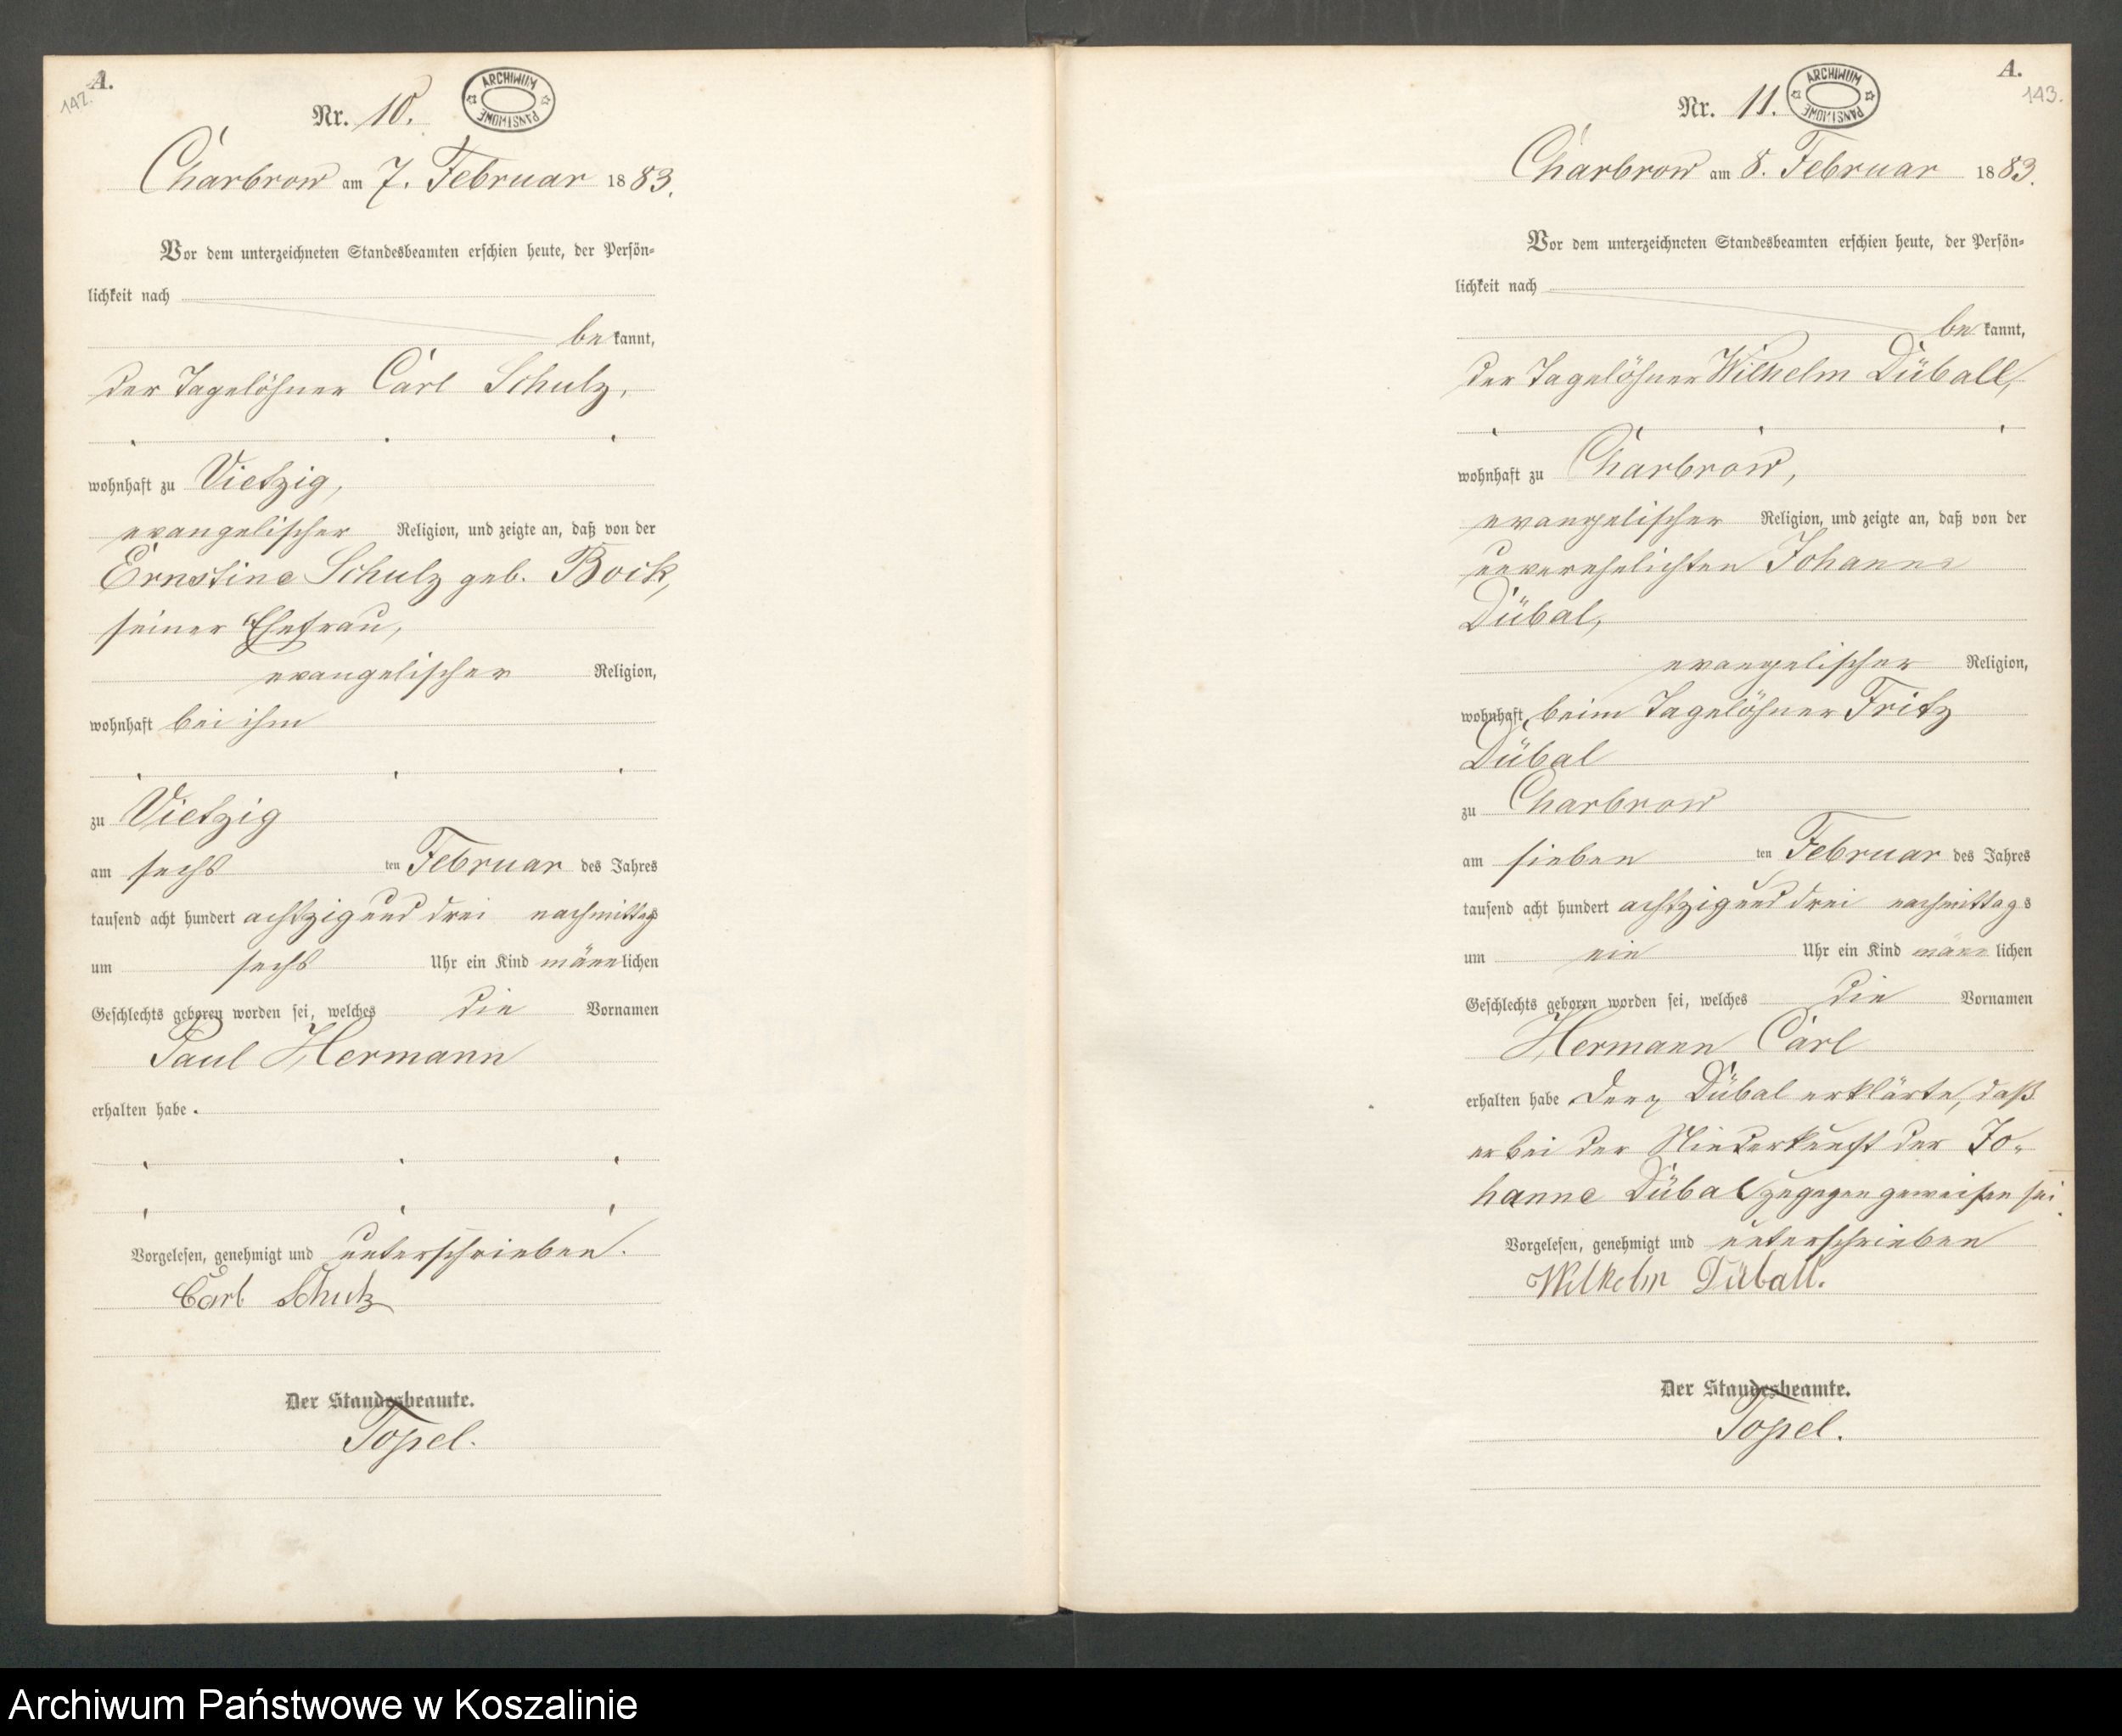 A.
142.
Nr. 10.
ARCHIWUM PAŃSTWOWE
Charbrow am 7. Februar 1883.
Vor dem unterzeichneten Standesbeamten erschien heute, der Persön-
lichkeit nach
be kannt,
der Tagelöhner Carl Schulz,
wohnhaft zu Vietzig,
evangelischer Religion, und zeigte an, daß von der
Ernstine Schulz geb. Bock,
seiner Ehefrau,
evangelischer Religion,
wohnhaft bei ihm
zu Vietzig
am sechs ten Februar des Jahres
tausend acht hundert achtzig und drei nachmittags
um sechs Uhr ein Kind männlichen
Geschlechts geboren worden sei, welches die Vornamen
Paul Hermann
erhalten habe.
Vorgelesen, genehmigt und unterschrieben.
Carl Schulz
Der Standesbeamte.
Topel.
A.
143.
Nr. 11.
ARCHIWUM PAŃSTWOWE
Charbrow am 8. Februar 1883.
Vor dem unterzeichneten Standesbeamten erschien heute, der Persön-
lichkeit nach
be kannt,
der Tagelöhner Wilhelm Düball,
wohnhaft zu Charbrow,
evangelischer Religion, und zeigte an, daß von der
unverehelichten Johanne
Dübal,
evangelischer Religion,
wohnhaft beim Tagelöhner Fritz
Dübal
zu Charbrow
am sieben ten Februar des Jahres
tausend acht hundert achtzig und drei nachmittags
um ein Uhr ein Kind männ lichen
Geschlechts geboren worden sei, welches die Vornamen
Hermann Carl
erhalten habe Dübal erklärte, daß
er bei der Niederkunft der Jo-
hanne Dübal zugegen gewesen sei.
Vorgelesen, genehmigt und unterschrieben
Wilhelm Düball.
Der Standesbeamte.
Topel.
Archiwum Państwowe w Koszalinie